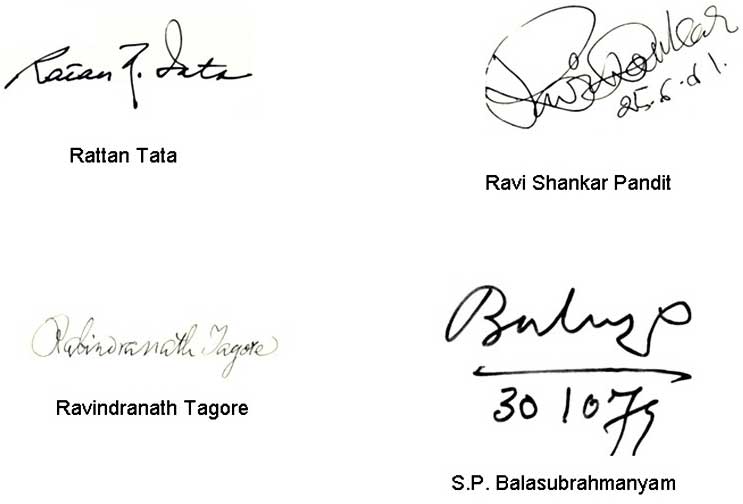 Ratan N. Tata
Rattan Tata
Ravi Shankar
25.6.61.
Ravi Shankar Pandit
Rabindranath Tagore
Ravindranath Tagore
30 10 79
S.P. Balasubrahmanyam